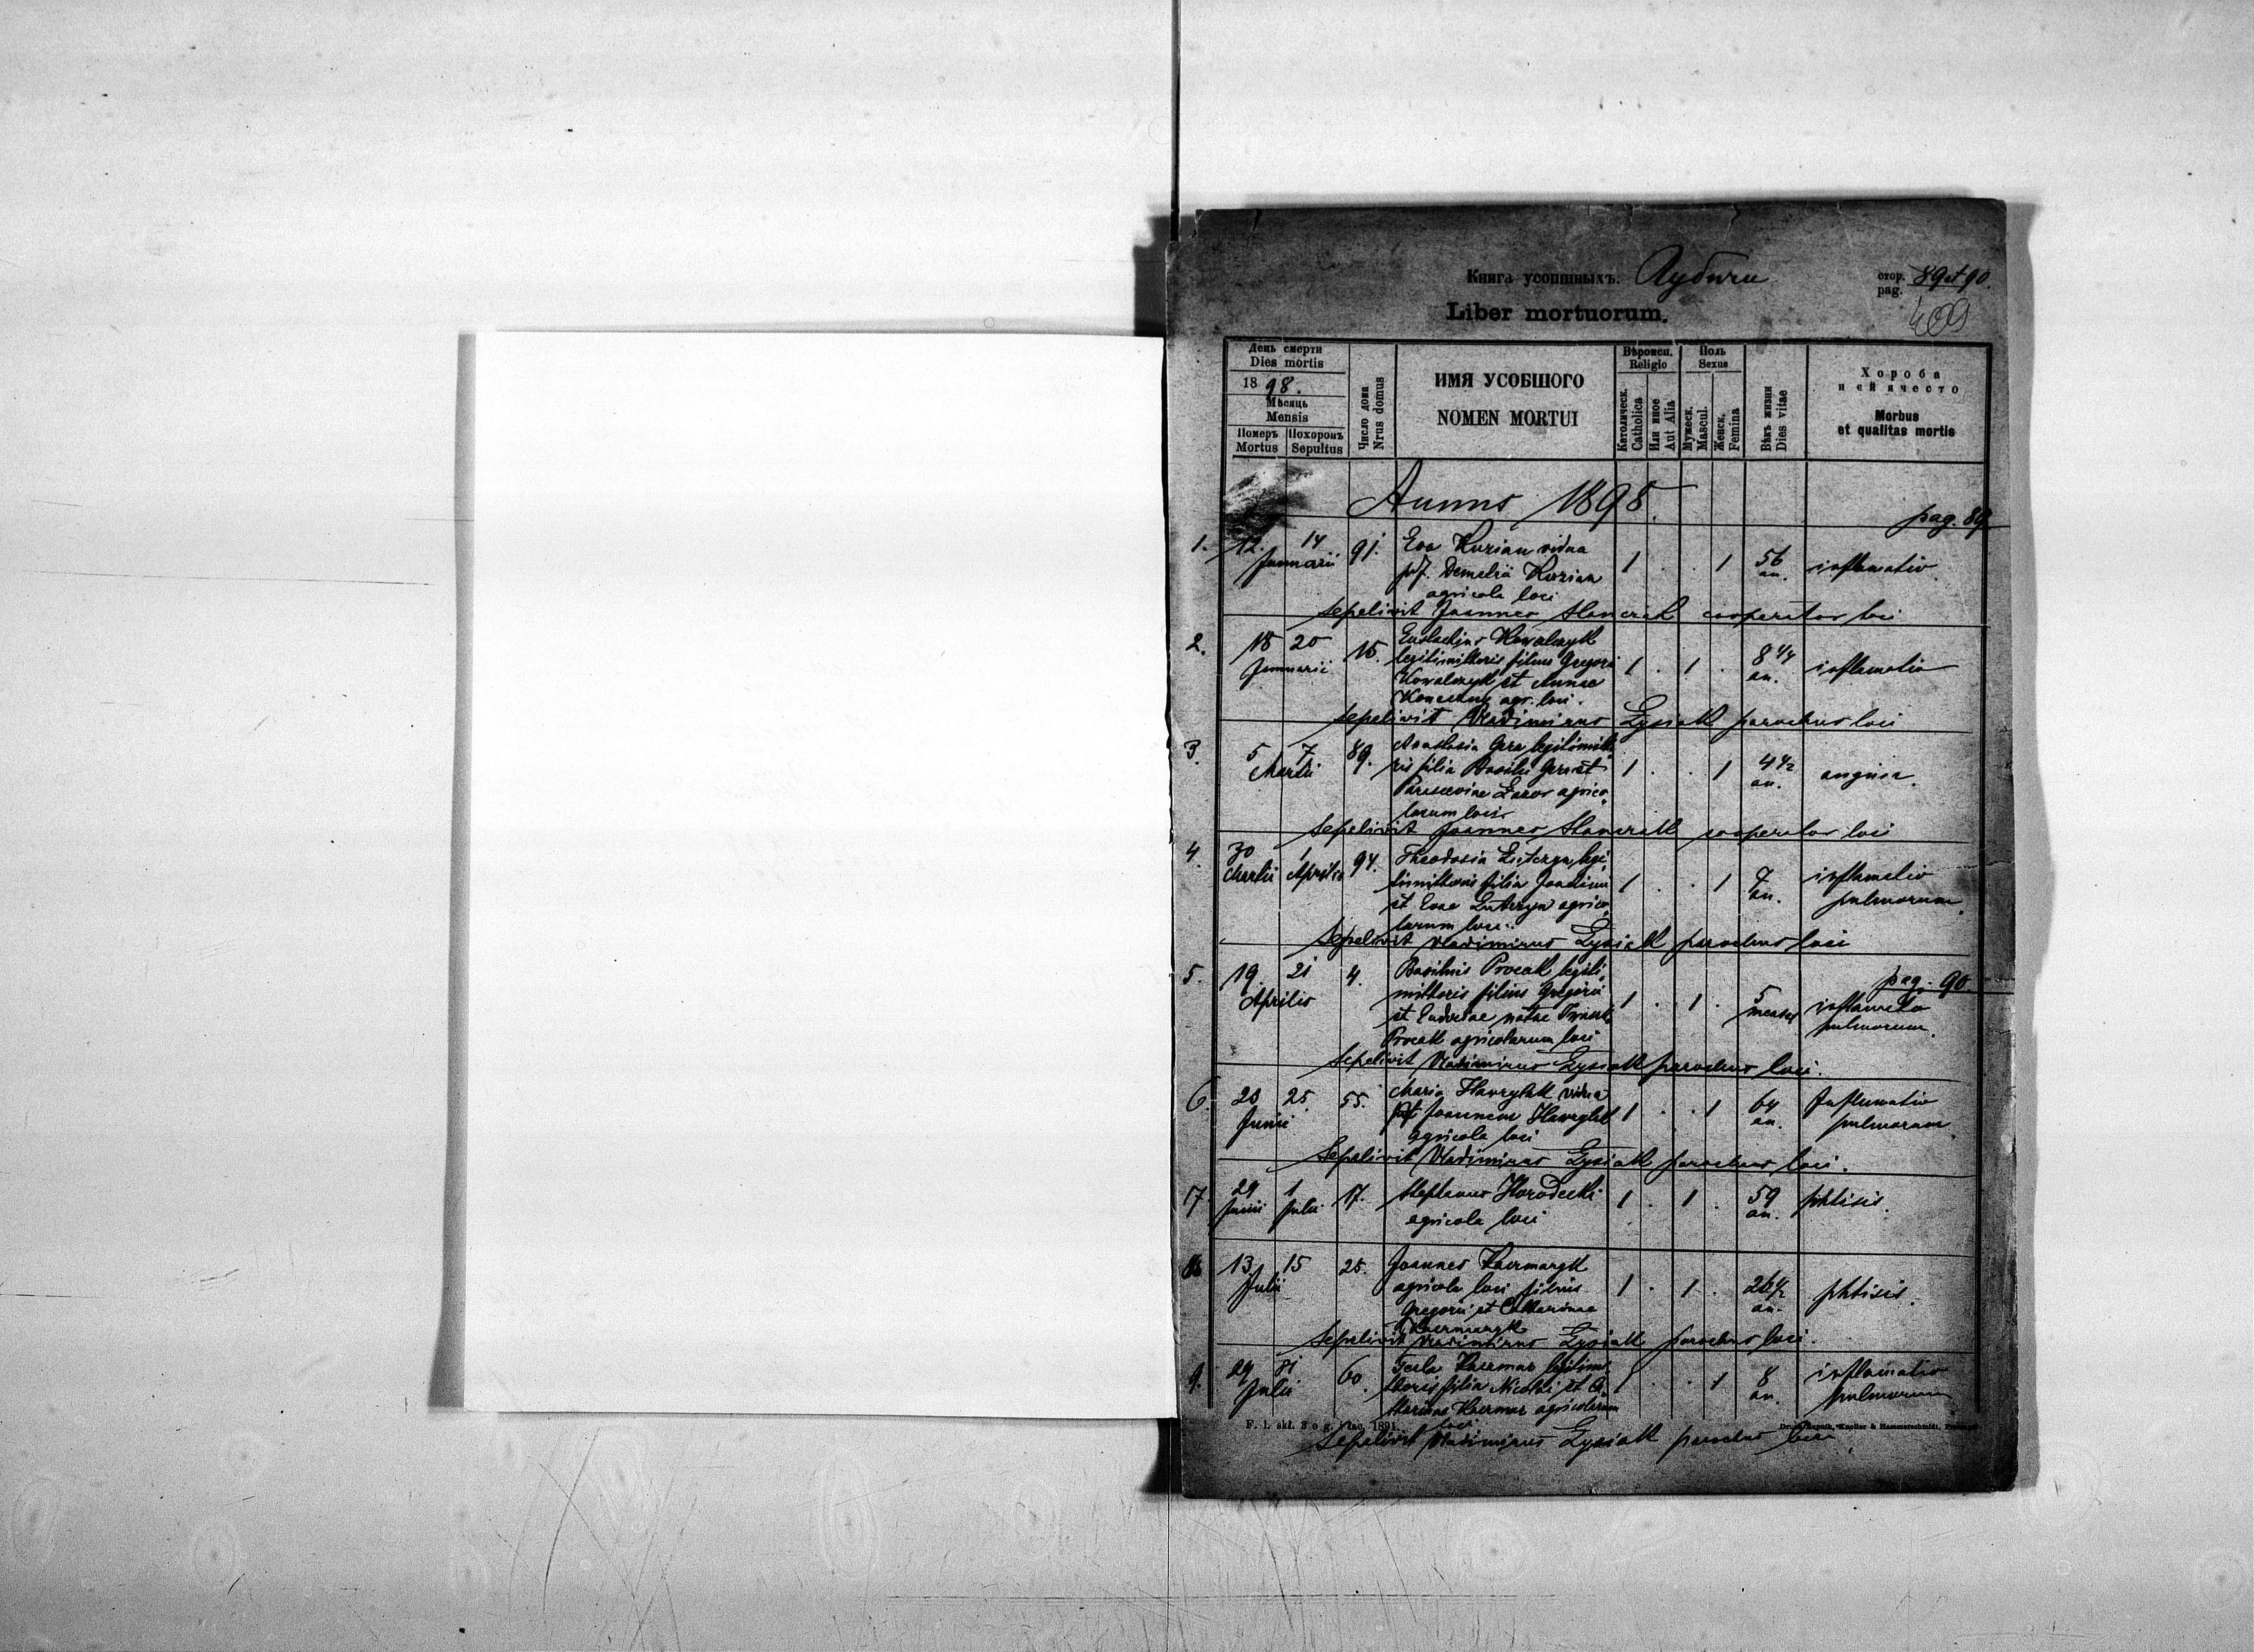 Книга усопшихъ. Лубичи стор. 89 et 90.
Liber mortuorum. pag.
409
День смерти
Dies mortis
1898.
Мѣсяць
Mensis
Померъ Похоронъ
Mortus Sepultus
Число дома
Nrus domus
ИМЯ УСОБШОГО
NOMEN MORTUI
Вѣроисп.
Religio
Католическ.
Catholica
Или иное
Aut Alia
Поль
Sexus
Мужеск.
Mascul.
Женск.
Femina
Вѣкъ жизни
Dies vitae
Хороба
и ей ячесто
Morbus
et qualitas mortis
Anno 1898.
pag. 89
1. 12. 14 Januarii 91. Eva Kurian vidua
p. f. Demetrii Kurian
agricola loci
1 . . 1 56 an. inflamatio
sepelivit Joannes cooperator loci
2. 18 20 Januarii 15. Eustachius Kowalczyk
legitimi thoris filius Gregorii
Kowalczyk et Annae
agr. loci.
1 . 1 . 8 1/4 an. inflamatio
sepelivit Vladimirus Łysiak parochus loci
3. 5 7 Martii 89. Anastasia Gera legitimi tho
ris filia Basilii Gera et
Parasceviae Łazor agrico
larum loci.
1 . . 1 4 1/2 an. angina.
sepelivit Joannes cooperator loci
4. 30 Martii 1 Aprilis 94. Theodosia legi
timi thoris filia Joachim
et Evae agrico
larum loci.
1 . . 1 7 an. inflamatio
pulmorum.
sepelivit Vladimirus Łysiak parochus loci
5. 19. 21 Aprilis 4. Basilius Procak legiti
mi thoris filius Gregorii
et Eudociae natae
Procak agricolarum loci
1 . 1 . 5 menses inflamatio
pulmorum.
pag. 90.
sepelivit Vladimirus Łysiak parochus loci.
6. 23 25 Junii 55. Maria Hawrylak vidua
post Joannem Hawrylak
agricola loci
1 . . 1 64 an. Inflamatio
pulmorum.
Sepelivit Vladimirus Łysiak parochus loci.
7. 29 Junii 1 Julii 17. Stephanus Horodecki
agricola loci
1 . 1 . 59 an. phtisis.
8 13 15 Julii 25. Joannes Kaczmaryk
agricola loci filius
Gregorii et Catharinae
Kaczmaryk
1 . 1 . 26 1/2 an. phtisis.
Sepelivit Vladimirus Łysiak parochus loci.
9. 29 31 Julii 60. Tecla Kaczmar legitimi
thoris filia Nicolai et Ca
tharinae Kaczmar agricolarum
loci
1 . . 1 8 an. inflamatio
pulmorum
F. 1. skł. 1891. Knoller & Hammerschmidt,
Sepelivit Vladimirus Łysiak parochus loci.